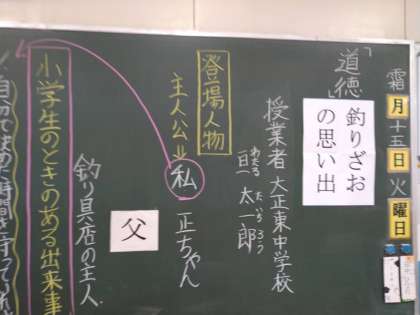 霜月十五日火曜日
「道徳」
釣りざお
の思い出
授業者 大正東中学校
わたる たいちろう
亘 太一郎
登場人物
主人公⇒私=一正ちゃん
父
釣り具店の主人
小学生のときのある出来事